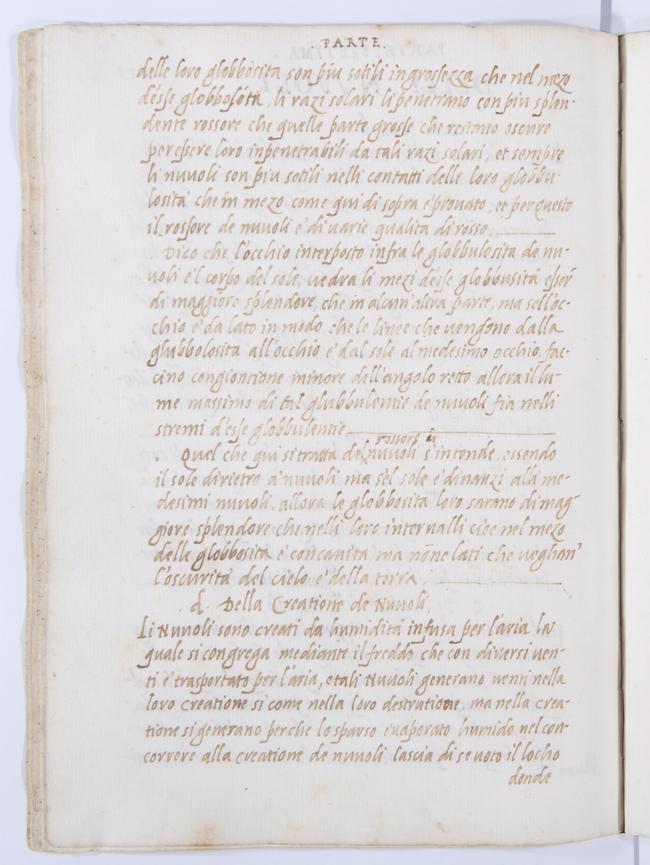 PARTE
delle loro globbosita son piu sotili in grossezza che nel mezo
d'esse globbosita, li razi solari li penetrano con piu splen-
dente rossore che quelle parte grosse che restano oscure
per essere loro inpenetrabili da tali razi solari, et sempre
li nuuoli son piu sotili nelli contatti delle loro globbu-
losita che in mezo come qui di sopra è prouato, et per questo
il rossore de nuuoli è di uarie qualita di rosso.
Dico che l'occhio interposto infra le globbulosita de nu-
uoli e'l corpo del sole, uedra li mezi d'esse globbusità esser'
di maggiore splendore, che in alcun'altra parte, ma se l'oc-
chio è da lato in modo che le linee che uengono dalla
glubbolosita all'occhio e' dal sole al medesimo occhio, fac-
cino congiontione minore dell'angolo retto allora il lu-
me massimo di tal glubbulentie de nuuoli fia nelli
stremi d'esse globbulentie
rossore de
Quel che qui si tratta del nuuoli s'intende, essendo
il sole dirietro a' nuuoli ma se'l sole è dinanzi alli me-
desimi nuuoli, allora le globbosita loro sarano di mag-
giore splendore che nelli loro interualli cioe nel mezo
delle globbosita e' concauita, ma nōne lati che ueghan'
l'oscurità del cielo e' della terra.
d. Della Creatione de Nuuoli.
Li Nuuoli sono creati da humidità infusa per l'aria la
quale si congrega mediante il freddo che con diuersi uen-
ti è trasportato per l'aria, e tali Nuuoli generano uenti nella
loro creatione si come nella loro destrutione, ma nella crea-
tione si generano perche lo sparso euaporato humido nel con-
correre alla creatione de nuuoli, lascia di se uoto il locho
donde